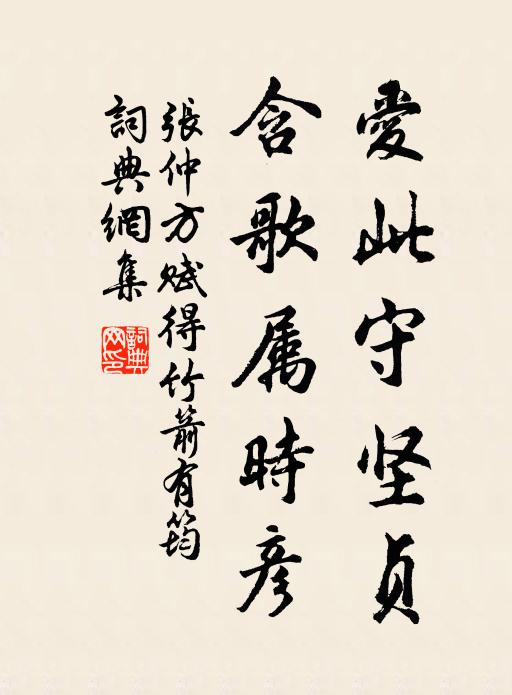 愛此守坚貞
含歌属時彥
張仲方赋得竹箭有筠
詞典網集
詞典網印